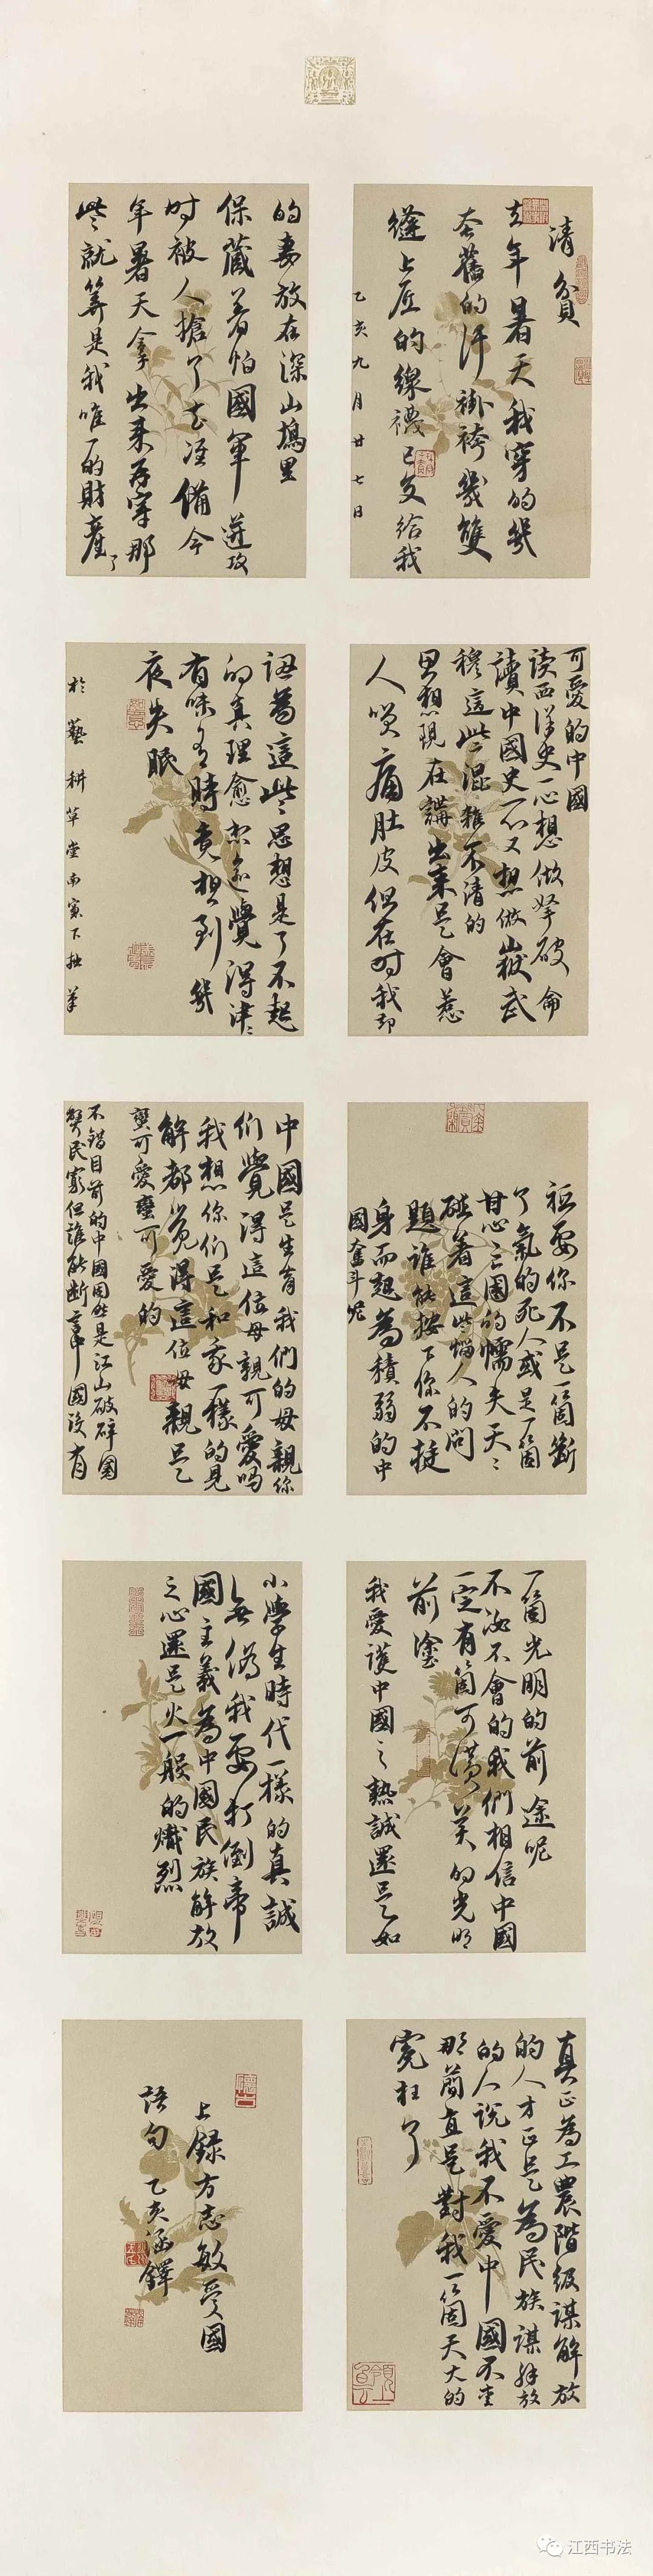 清貧
去年暑天我穿的幾
套舊的汗褂袴幾雙
縫上底的線襪已交給我
乙亥九月廿七日
的妻放在深山塢里
保藏着怕國軍進攻
时被人搶了去准備今
年暑天拿出來再穿那
些就算是我唯一的財產了
可愛的中國
读西洋史一心想做拏破侖
讀中國史一心又想做嶽武
穆這些混雜不清的
思想現在講出來是會惹
人哎痛肚皮但在时我却
認為這些思想是了不起
的真理愈想愈覺得津津
有味有時竟想到幾
夜失眠
於藝耕草堂南窗下拙筆
祗要你不是一箇斷
了氣的死人或是一箇
甘心亡國的懦夫天天
碰着這些惱人的問
題誰能按下你不挺
身而起為積弱的中
國奮斗呢
中國是生育我們的母親你
們覺得這位母親可愛吗
我想你們是和我一樣的見
解都覺得這位母親是
蠻可愛蠻可愛的
不錯目前的中國固然是江山破碎國
獘民窮但誰能斷言中國没有
一箇光明的前途呢
不決不會的我們相信中國
一定有箇可讚美的光明
前塗
我愛護中國之熱誠還是如
小學生時代一樣的真誠
無僞我要打倒帝
國主義為中國民族解放
之心還是火一般的熾烈
真正為工農階级谋解放
的人才正是為民族谋解放
的人说我不愛中國不
那简直是對我一箇天大的
冤枉了
上録方志敏愛國
語句乙亥
江西书法